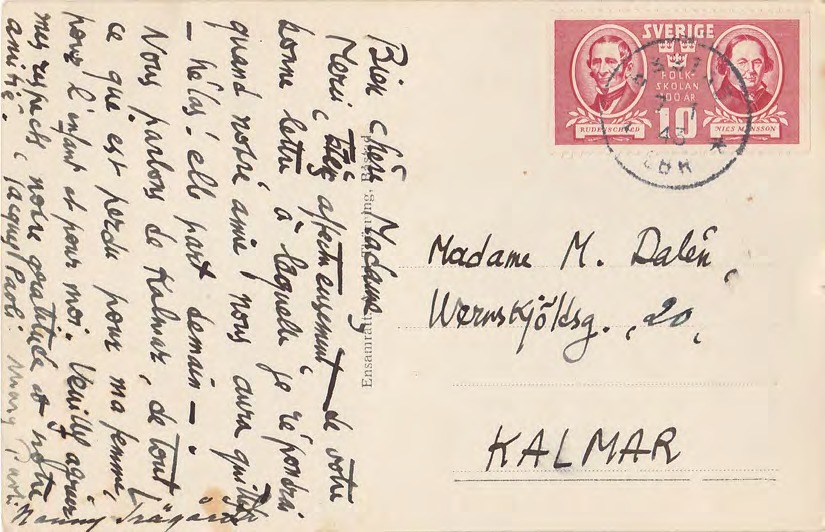 Bien chère Madame,
Merci très affectueusement de votre
bonne lettre à laquelle je répondrai
quand notre amie nous aura quittés
- hélas! elle part demain -.
Nous parlons de Kalmar, de tout
ce que est perdu pour ma femme,
pour l'enfant et pour moi. Veuillez agréer
mes respects, notre gratitude et notre
amitié. Jacques Paoli. Mary Paoli
Nanny
Ensamrätt
SVERIGE
FOLK-
SKOLAN
100 ÅR
10
RUDENSCHÖLD
NILS MÅNSSON
43
LBR
Madame M. Dalén,
Wernskjöldsg. 20,
KALMAR